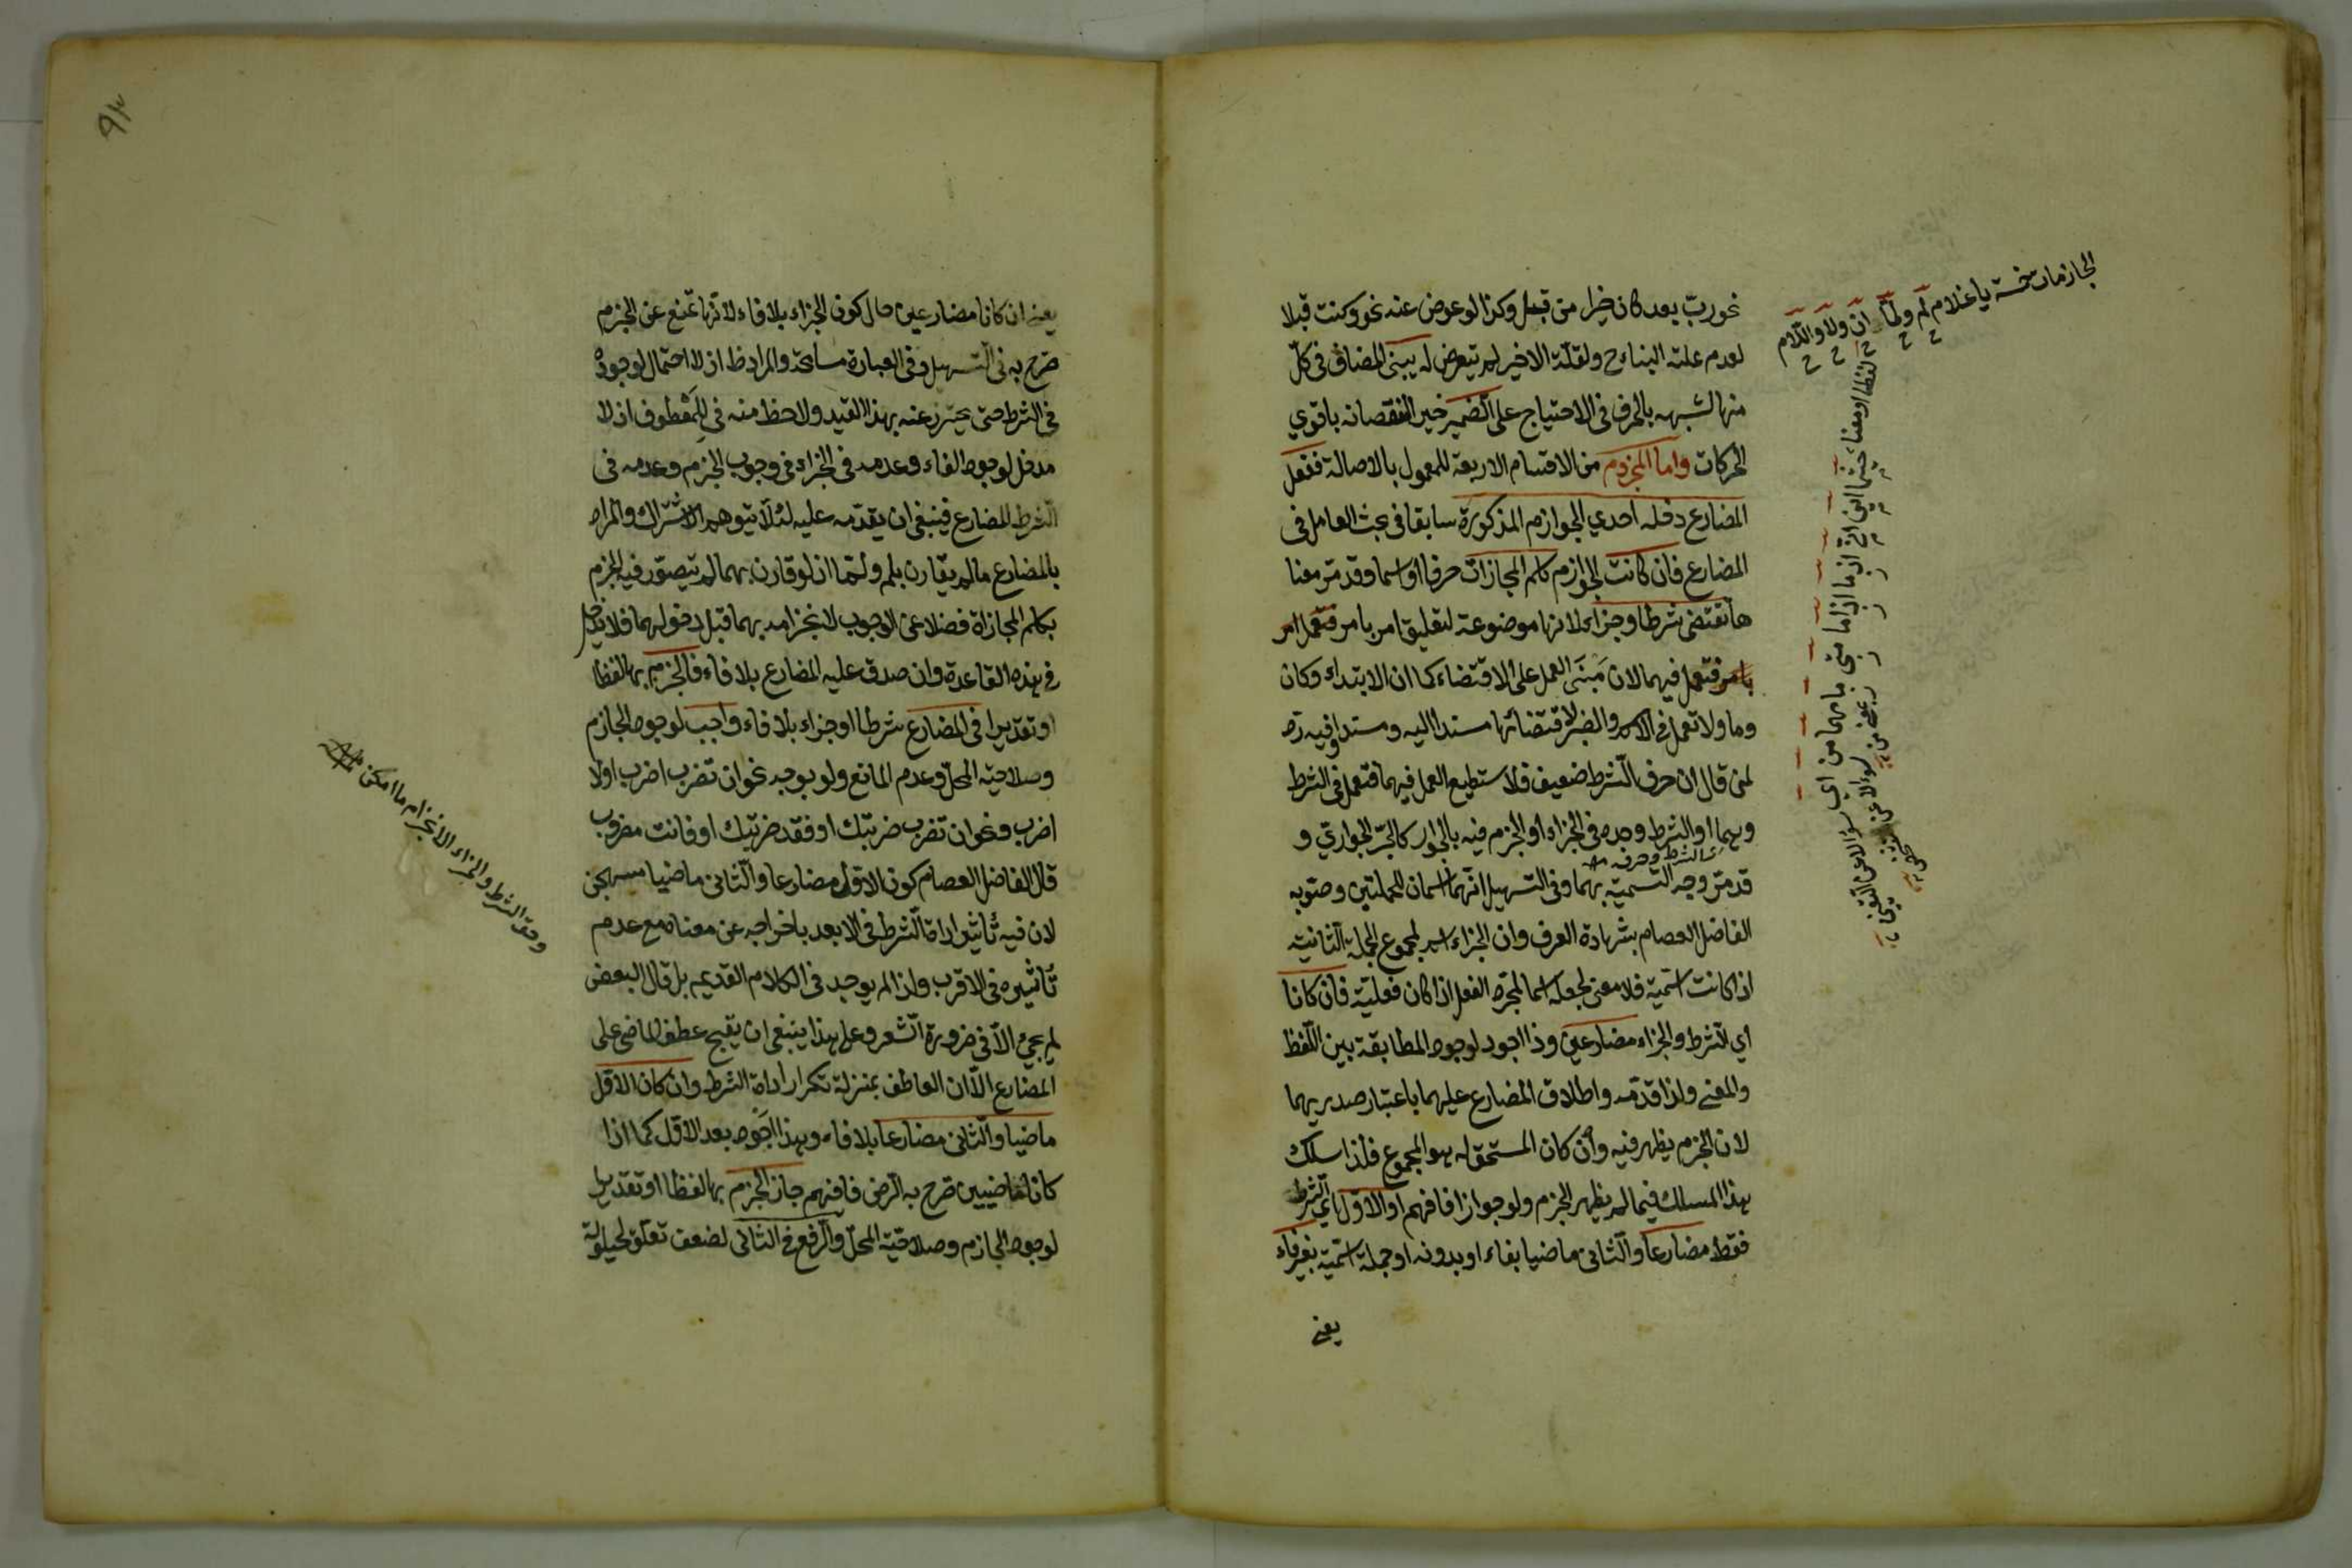 نحو ربّ بعد كان خيرا من قبل وكذا لو عوض عنه نحو وكنت قبلا
لعدم علته البناء ح ولقلّة الاخير لم يتعرض له يبنى المضاف في كلّ
منها لشبهه بالحرف في الاحتياج على الضم خير النقصانه باقوي
الحركات واما المجزوم من الاقسام الاربعة للمعمول بالاصالة ففعل
المضارع دخله احدي الجوازم المذكورة سابقا في بحث العامل في
المضارع فان كانت الجوازم كلم المجازات حرفا او اسما وقد مرّ معنا
ها تقتضى شرطا وجزاء لانها موضوعة لتعليق امر بامر فتعمل امر
بامر فتعمل فيهما لان مَبنَى العمل على الاقتضاء كما ان الابتداء وكان
وما ولا تعمل في الاسم والخبر لاقتضائها مسندا اليه ومسندا وفيه ردّ
لمن قال ان حرف الشرط ضعيف فلا يستطيع العمل فيهما فتعمل في الشرط
وبهما او الشرط وحده في الجزاء او الجزم فيه بالجوار كالجرّ الجواريّ و
اي الشرط وحرفه
قد مرّ وجه التسمية بهما وفي التسهيل انّهما اسمان للجملتين وصوّبه
الفاضل العصام بشهادة العرف وان الجزاء اسم لمجموع الجملة الثانية
اذا كانت اسميّة فلا معنى لجعله اسما لمجرّد الفعل اذا كان فعليّة فان كانا
اي الشرط والجزاء مضارعين وذا اجود لوجود المطابقة بين اللّفظ
والمعنى ولذا قدّمه واطلاق المضارع عليهما باعتبار صدريهما
لان الجزم يظهر فيه وان كان المستحق له هو المجموع فلذا سلك
هذا المسلك فيما لم يظهر الجزم ولو جوازا فافهم او الاوّل اي الشرط
فقط مضارعا والثّانى ماضيا بفاء او بدونه او جملة اسميّة بغير فاء
يعنى
الجازمات خمسة يا غلام لم ولمّا ان ولا واللّام
لفظا او معنا حيثما اين انّى اذ ما اذا ما متى ما مهما من ايّ
يعنى ان كانا مضارعين حال كون الجزاء بلا فاء لانّها تمنع عن الجزم
صرّح به في التسهيل وفي العبارة مسامحة والمراد ظ اذ لا احتمال لوجوده
في الشرط حتى يحترز عنه بهذا القيد ولا حظ منه في المعطوف اذ لا
مدخل لوجود الفاء وعدمه في الجزاء في وجوب الجزم وعدمه في
الشرط المضارع فينبغى ان يقدّمه عليه لئلّا يتوهم الاشتراك والمراد
بالمضارع ما لم يقارن بلم ولمّا اذ لو قارن بهما لم يتصوّر فيه الجزم
بكلم المجازاة فضلا عن الوجوب لانجزامه بهما قبل دخولهما فلا يدخل
في هذه القاعدة وان صدق عليه المضارع بلا فاء فالجزم بها لفظا
او تقديرا في المضارع شرطا او جزاء بلا فاء واجب لوجود الجازم
وصلاحيّة المحلّ وعدم المانع ولو بوجه نحو ان تضرب اضرب اولا
اضرب ونحو ان تضرب ضربتك او فقد ضربتك او فانت مضروب
قال الفاضل العصام كون الاوّل مضارعا والثّانى ماضيا مستهجن
لان فيه تأثير اداة الشرط في الابعد باخراجه عن معناه مع عدم
تأثيره في الاقرب ولذا لم يوجد في الكلام القديم بل قال البعض
لم يجئ الّا في ضرورة الشعر وعلى هذا ينبغى ان يقبح عطف الماضى على
المضارع الّا ان العاطف بمنزلة تكرار اداة الشرط وان كان الاوّل
ماضيا والثّانى مضارعا بلا فاء وهذا اجود بعد الاوّل كما اذا
كانا ماضيين صرّح به الرضى فافهم جاز الجزم بها لفظا او تقديرا
لوجود الجازم وصلاحيّة المحلّ والرفع في الثّانى لضعف تعلّق لحيلولة
وحق الشرط والجزاء الانجزام ما امكن